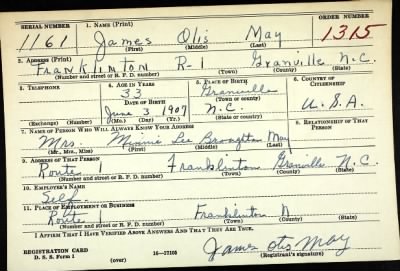 SERIAL NUMBER 1. NAME (Print) ORDER NUMBER
1161 James Otis May 1315
(First) (Middle) (Last)
2. ADDRESS (Print)
Franklinton R-1 Granville N.C.
(Number and street or R. F. D. number) (Town) (County) (State)
3. TELEPHONE 4. AGE IN YEARS 5. PLACE OF BIRTH 6. COUNTRY OF CITIZENSHIP
33 Granville
DATE OF BIRTH (Town or county)
June 3 1907 N.C. U.S.A.
(Exchange) (Number) (Mo.) (Day) (Yr.) (State or country)
7. NAME OF PERSON WHO WILL ALWAYS KNOW YOUR ADDRESS 8. RELATIONSHIP OF THAT PERSON
Mrs. Minnie Lee Broughton May
(Mr., Mrs., Miss) (First) (Middle) (Last)
9. ADDRESS OF THAT PERSON
Route 1 Franklinton Granville N.C.
(Number and street or R. F. D. number) (Town) (County) (State)
10. EMPLOYER'S NAME
Self.
11. PLACE OF EMPLOYMENT OR BUSINESS
Route 1 Franklinton N
(Number and street or R. F. D. number) (Town) (County) (State)
I AFFIRM THAT I HAVE VERIFIED ABOVE ANSWERS AND THAT THEY ARE TRUE.
REGISTRATION CARD
D. S. S. Form 1 (over) 16—17105 James Otis May
(Registrant's signature)